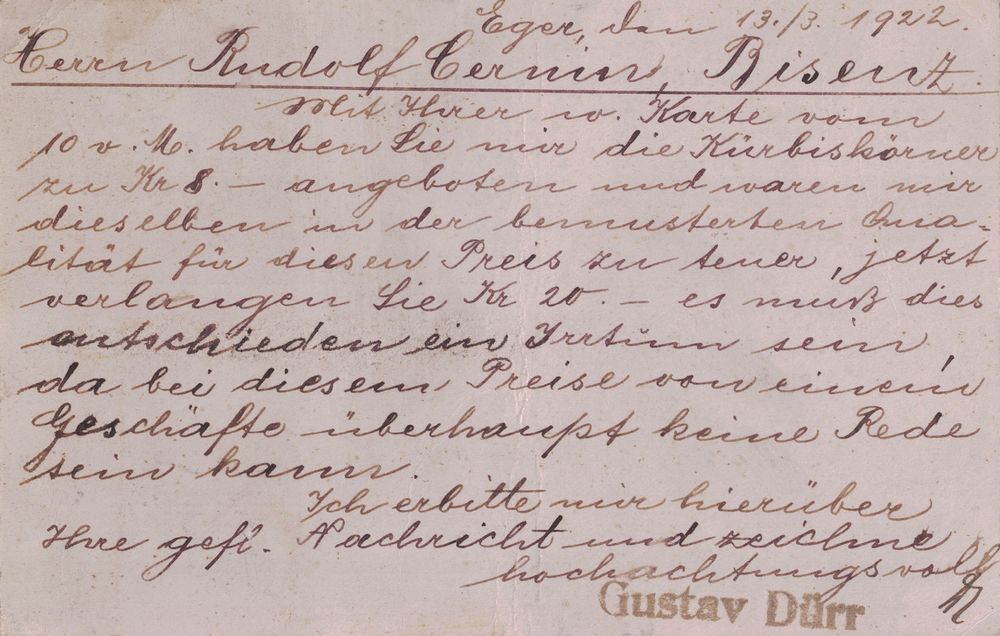 Eger, den 13./3. 1922.
Herrn Rudolf Cernin, Bisenz.
Mit Ihrer w. Karte vom
10 v. M. haben Sie mir die Kürbiskörner
zu Kr 8.— angeboten und waren mir
dieselben in der bemusterten Qua-
lität für diesen Preis zu teuer, jetzt
verlangen Sie Kr 20.— es muß dies
entschieden ein Irrtum sein,
da bei diesem Preise von einem
Geschäfte überhaupt keine Rede
sein kann.
Ich erbitte mir hierüber
Ihre gefl. Nachricht und zeichne
hochachtungsvoll
Gustav Dürr